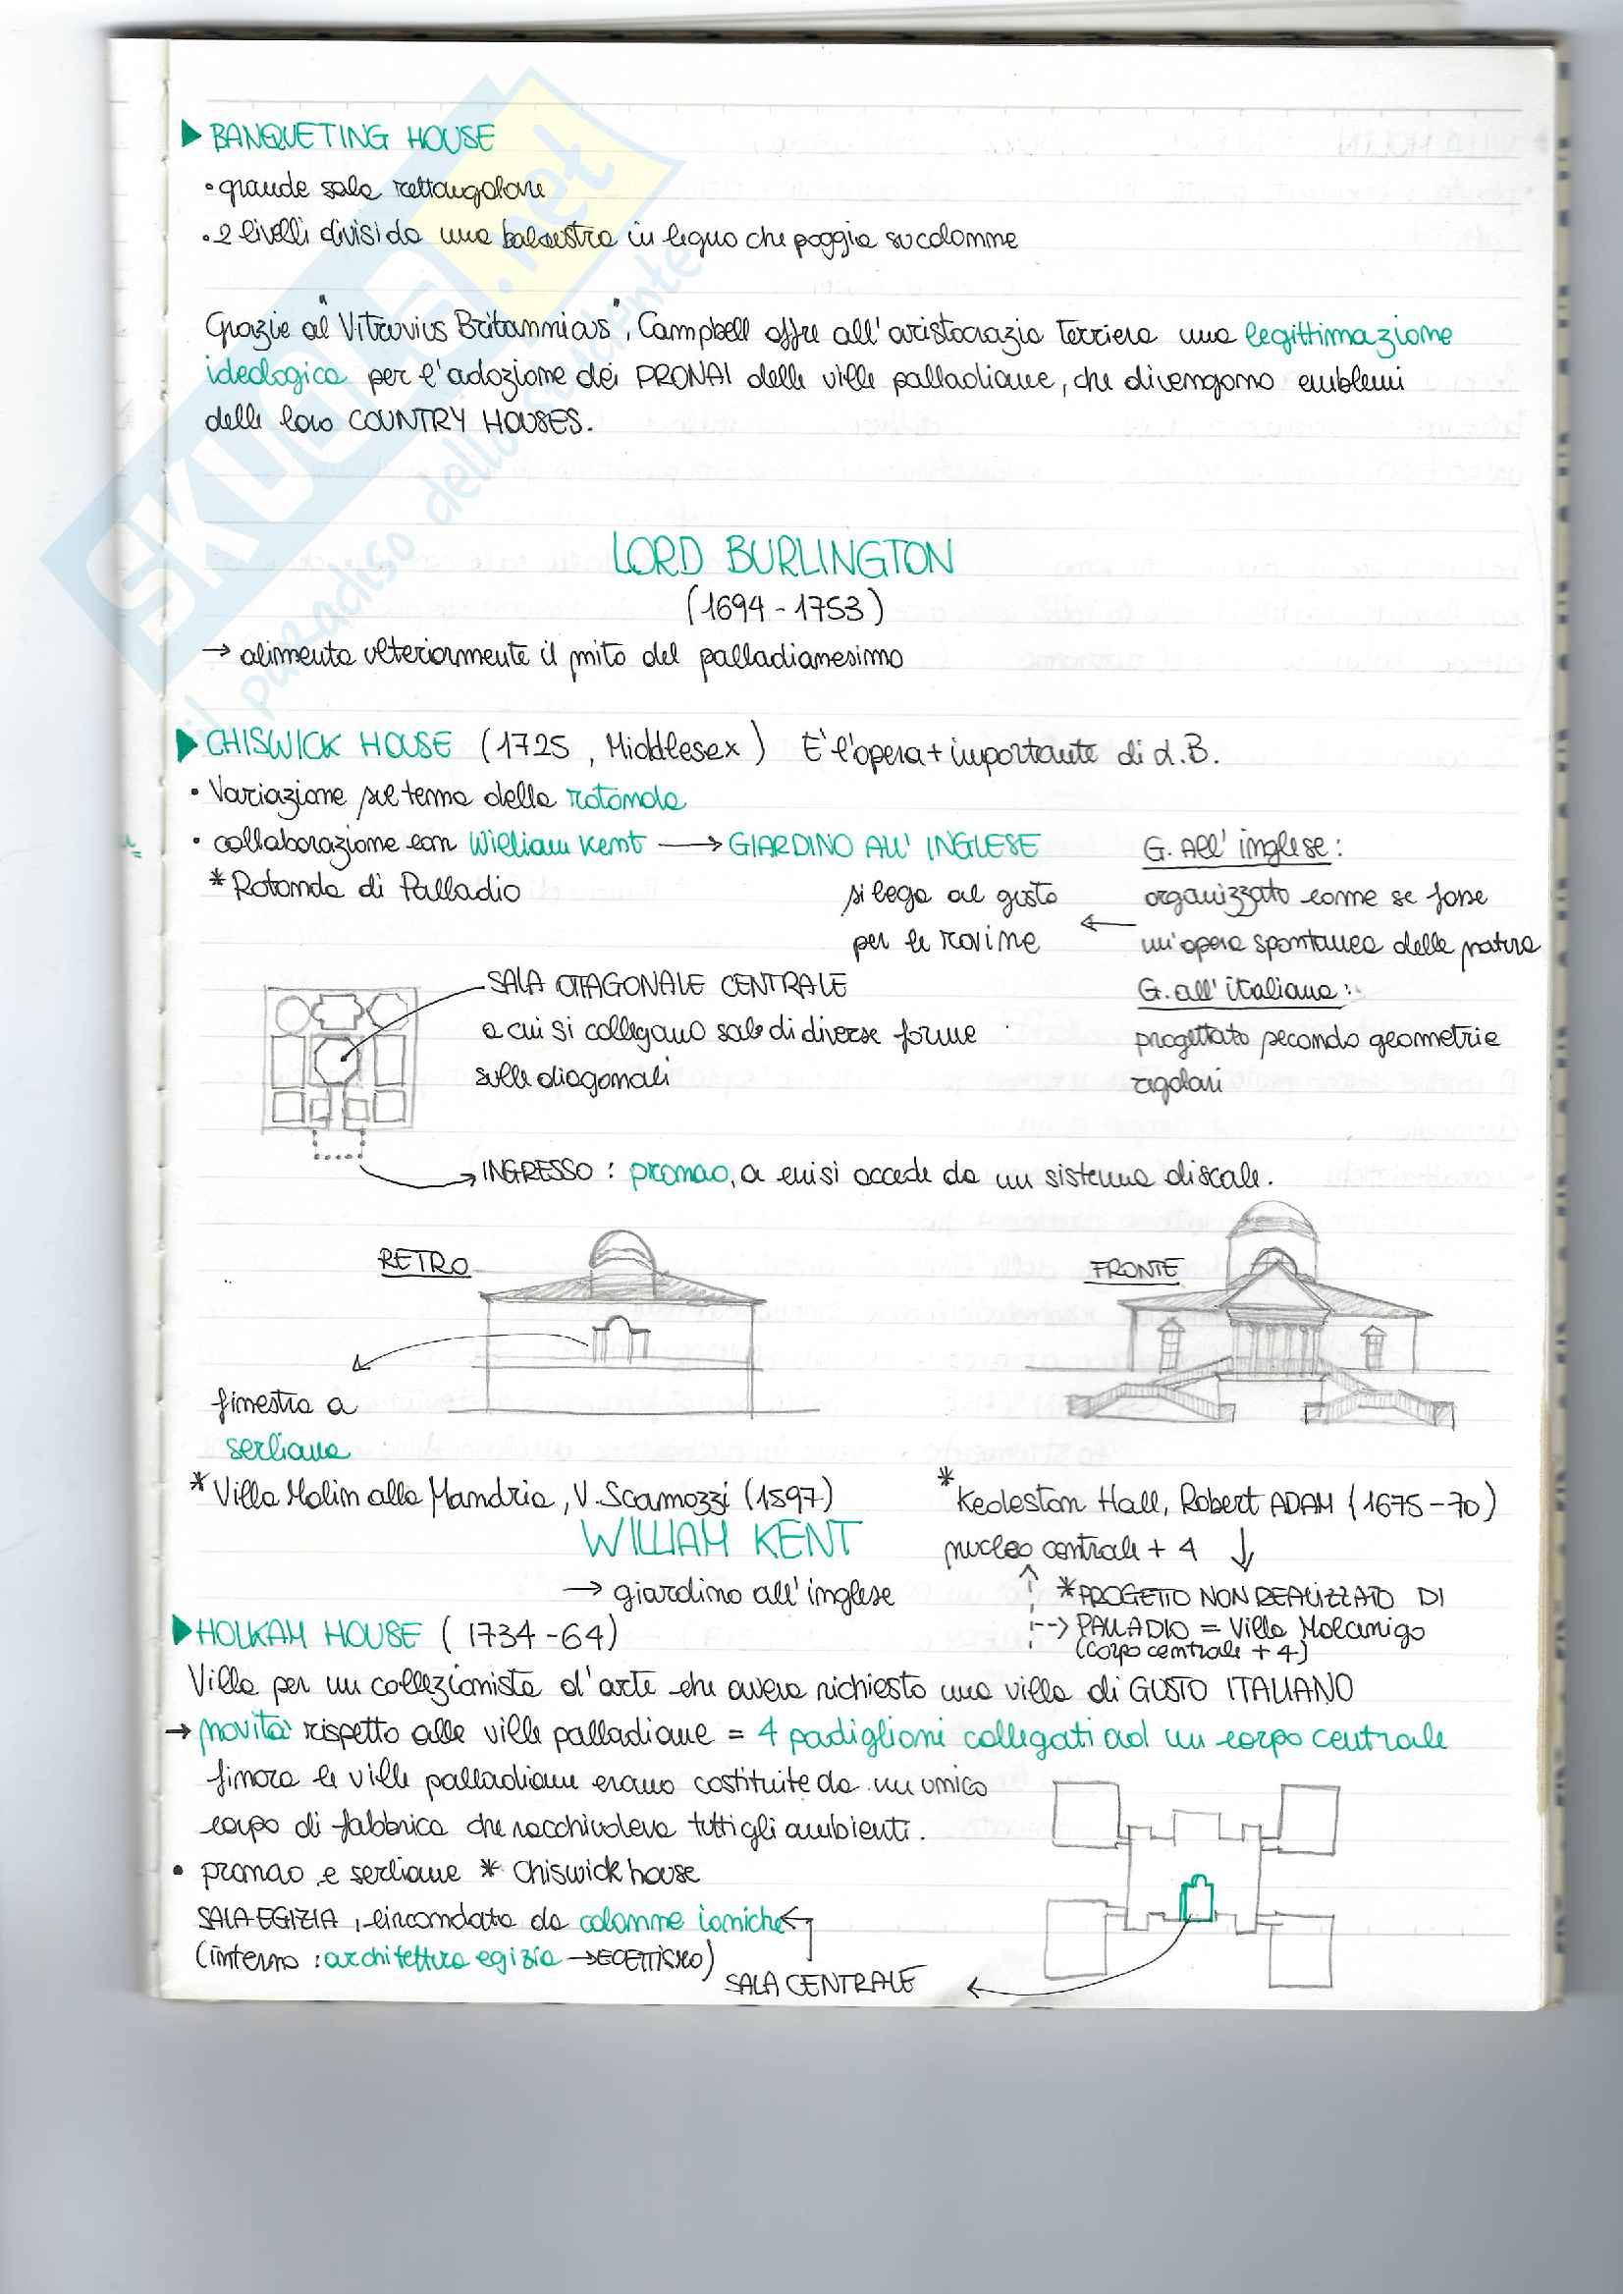 BANQUETING HOUSE
• grande sala rettangolare
• 2 livelli divisi da una balaustra in legno che poggia su colonne
Grazie al "Vitruvius Britannicus", Campbell offre all'aristocrazia terriera una legittimazione
ideologica per l'adozione dei PRONAI delle ville palladiane, che divengono emblemi
delle loro COUNTRY HOUSES.
LORD BURLINGTON
(1694-1753)
→ alimenta ulteriormente il mito del palladianesimo
CHISWICK HOUSE (1725, Middlesex) E' l'opera + importante di L.B.
• Variazione sul tema della rotonda
• collaborazione con William Kent → GIARDINO ALL'INGLESE
* Rotonda di Palladio
si lega al gusto
per le rovine
G. All'inglese:
organizzato come se fosse
un'opera spontanea della natura
G. all'italiana:
progettato secondo geometrie
regolari
SALA OTTAGONALE CENTRALE
a cui si collegano sale di diverse forme
sulle diagonali
INGRESSO: pronao, a cui si accede da un sistema di scale.
RETRO
FRONTE
finestra a
serliana
* Villa Molin alla Mandria, V. Scamozzi (1597)
* Kedleston Hall, Robert ADAM (1675-70)
nucleo centrale + 4
* PROGETTO NON REALIZZATO DI
PALLADIO = Villa Mocenigo
(corpo centrale + 4)
WILLIAM KENT
→ giardino all'inglese
HOLKAM HOUSE (1734-64)
Villa per un collezionista d'arte che aveva richiesto una villa di GUSTO ITALIANO
→ novità rispetto alle ville palladiane = 4 padiglioni collegati ad un corpo centrale
finora le ville palladiane erano costituite da un unico
corpo di fabbrica che racchiudeva tutti gli ambienti.
• pronao e serliane * Chiswick house
SALA EGIZIA, circondata da colonne ioniche
(interno: architettura egizia → ECLETTISMO)
SALA CENTRALE
SKUOLA.net
il paradiso dello studente